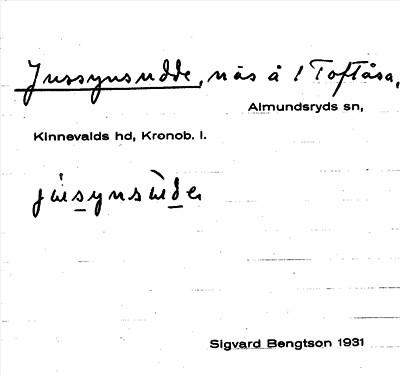 Jussynsudde, näs å 1 Toftåsa,
Almundsryds sn,
Kinnevalds hd, Kronob. l.
Sigvard Bengtson 1931